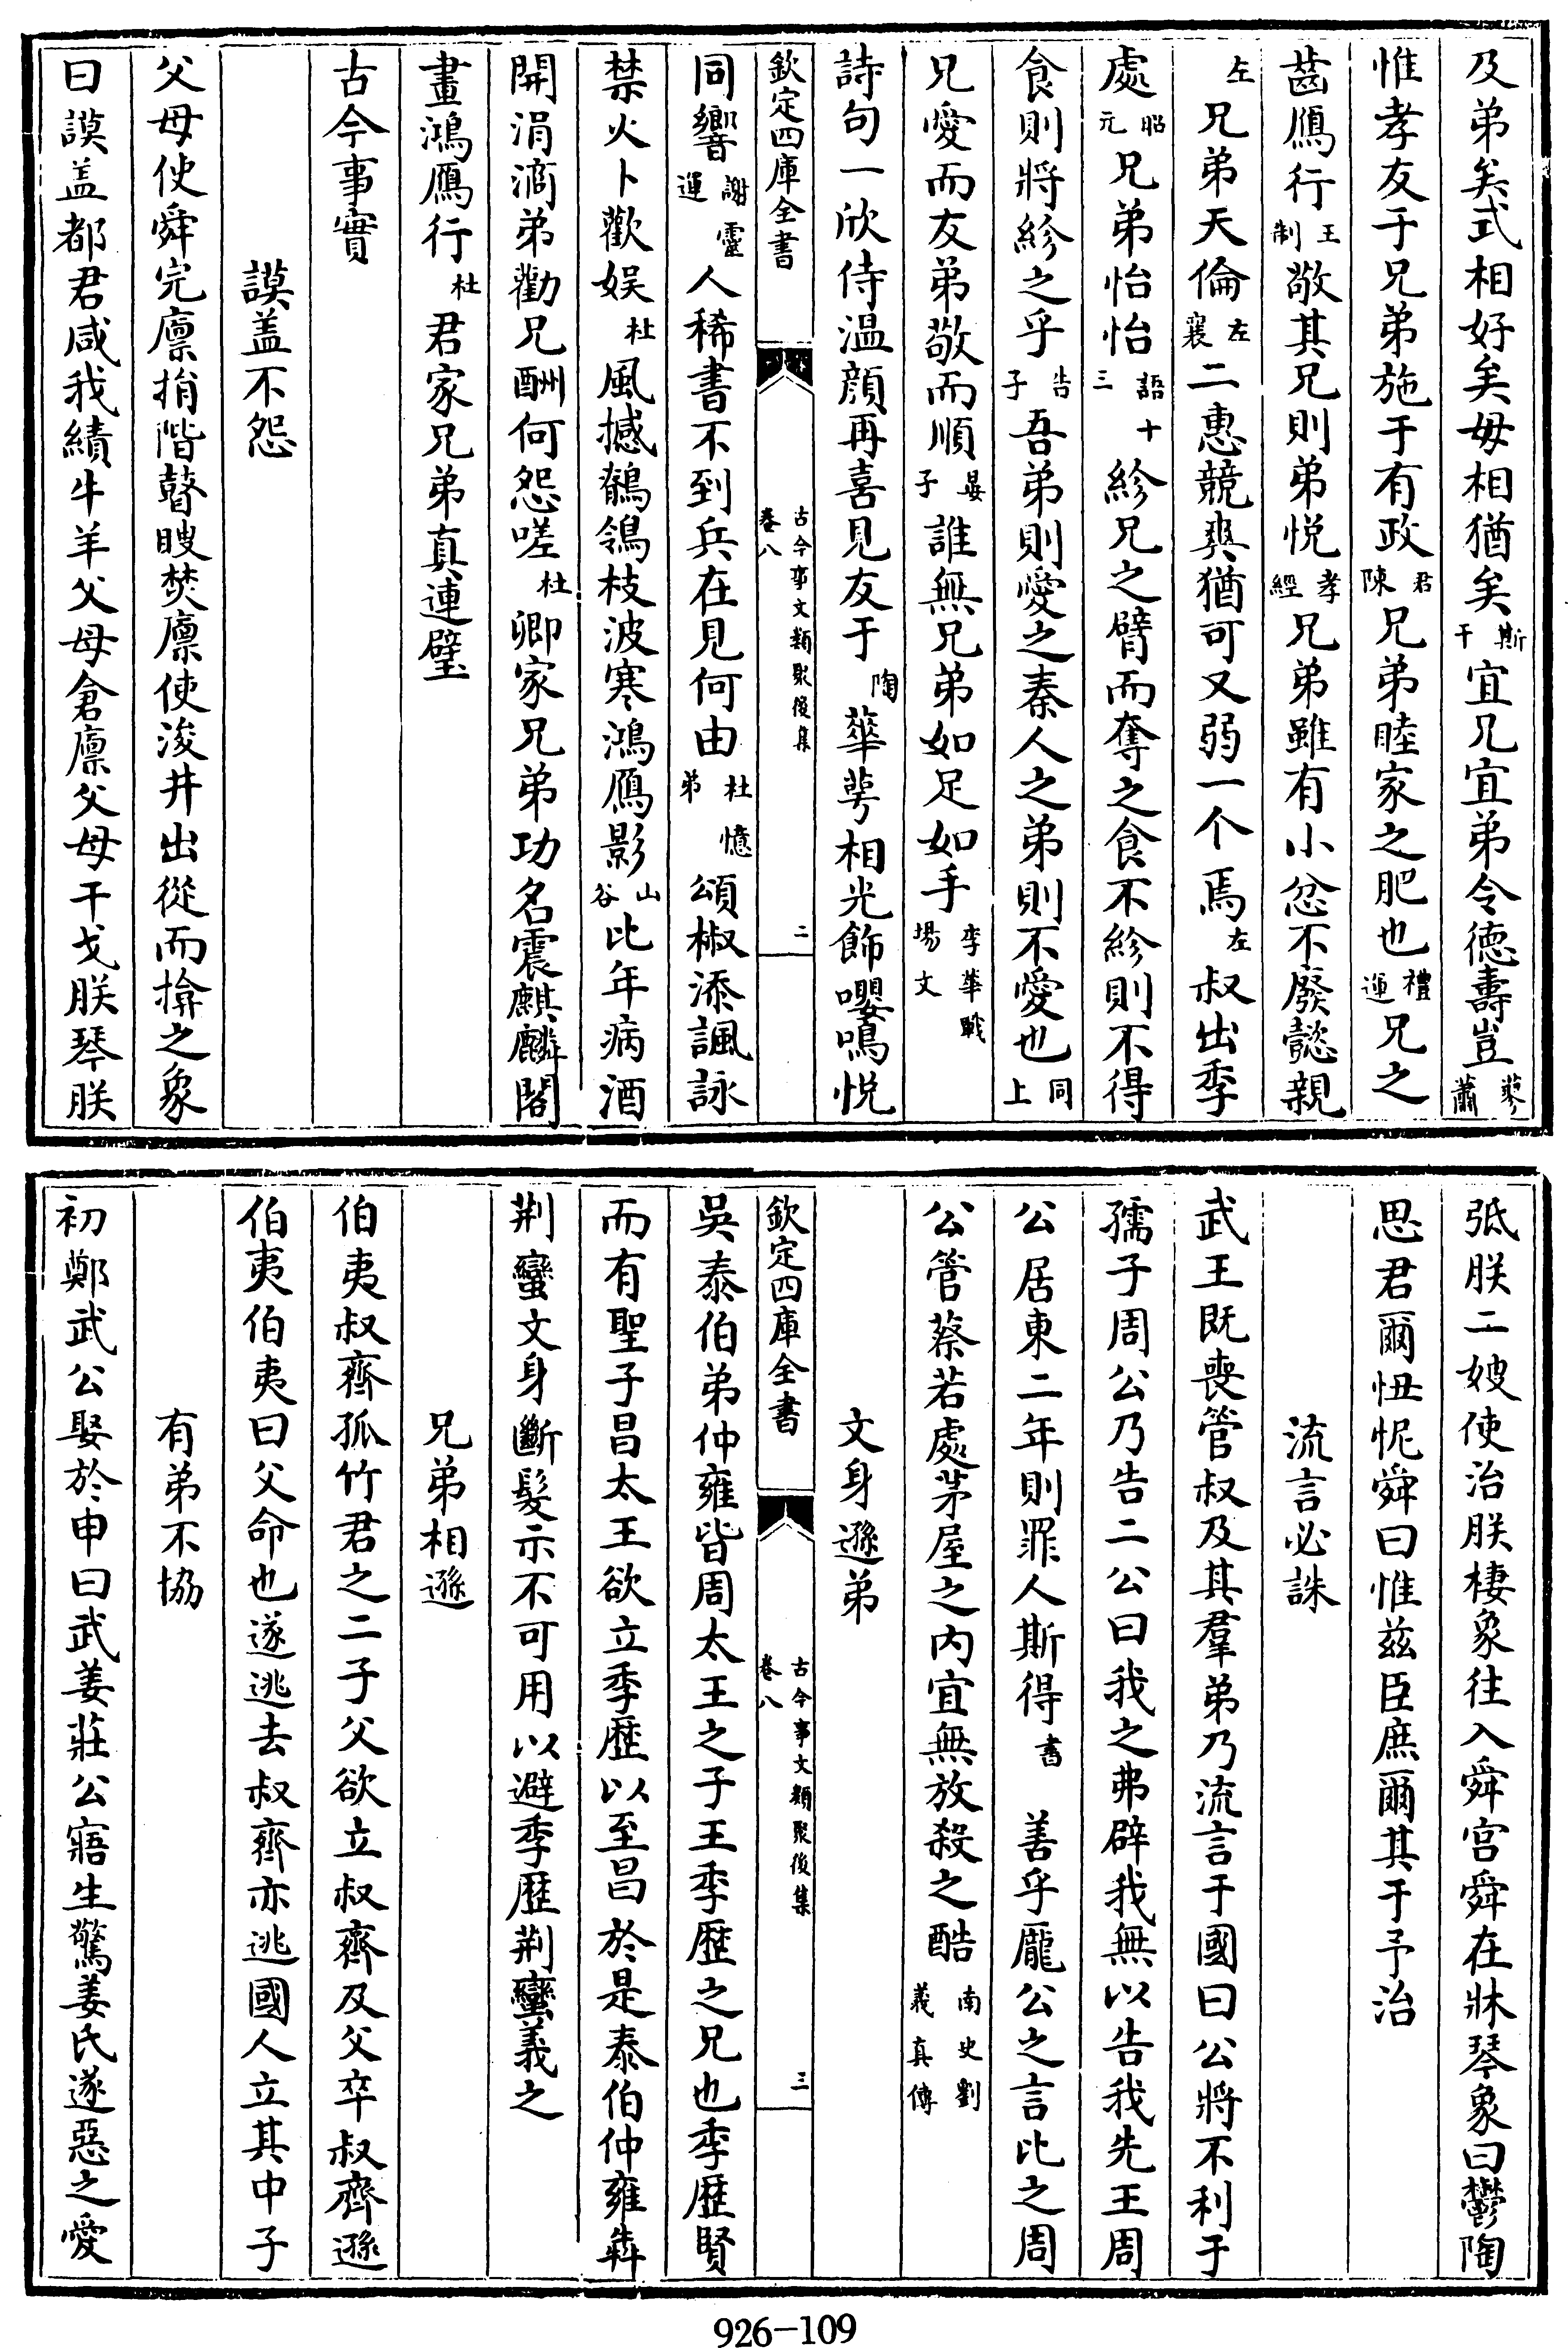 及弟矣式相好矣毋相猶矣斯干宜兄宜弟令德壽豈蓼蕭
惟孝友于兄弟施于有政君陳兄弟睦家之肥也禮運兄之
齒鴈行王制敬其兄則弟悦孝經兄弟雖有小忿不廢懿親
左兄弟天倫左襄二惠競爽猶可又弱一个焉左叔出季
處昭元兄弟怡怡語十三紾兄之臂而奪之食不紾則不得
食則將紾之乎告子吾弟則愛之秦人之弟則不愛也同上
兄愛而友弟敬而順晏子誰無兄弟如足如手李華戰場文
詩句一欣侍温顔再喜見友于陶華萼相光飾嚶鳴悦
欽定四庫全書
古今事文類聚後集
卷八
二
同響謝靈運人稀書不到兵在見何由杜憶弟頌椒添諷詠
禁火卜歡娱杜風撼鶺鴒枝波寒鴻鴈影山谷比年病酒
開涓滴弟勸兄酬何怨嗟杜卿家兄弟功名震麒麟閣
畫鴻鴈行杜君家兄弟真連璧
古今事實
謨盖不怨
父母使舜完廩捐階瞽瞍焚廩使浚井出從而揜之象
曰謨盖都君咸我績牛羊父母倉廩父母干戈朕琴朕
弤朕二嫂使治朕棲象往入舜宫舜在牀琴象曰鬱陶
思君爾忸怩舜曰惟兹臣庶爾其于予治
流言必誅
武王既喪管叔及其羣弟乃流言于國曰公將不利于
孺子周公乃告二公曰我之弗辟我無以告我先王周
公居東二年則罪人斯得書善乎龎公之言比之周
公管蔡若處茅屋之内宜無放殺之酷南史劉義真傳
文身遜弟
欽定四庫全書
古今事文類聚後集
卷八
三
吳泰伯弟仲雍皆周太王之子王季歴之兄也季歴賢
而有聖子昌太王欲立季歴以至昌於是泰伯仲雍犇
荆蠻文身斷髮示不可用以避季歴荆蠻義之
兄弟相遜
伯夷叔齊孤竹君之二子父欲立叔齊及父卒叔齊遜
伯夷伯夷曰父命也遂逃去叔齊亦逃國人立其中子
有弟不協
初鄭武公娶於申曰武姜莊公寤生驚姜氏遂惡之愛
926-109